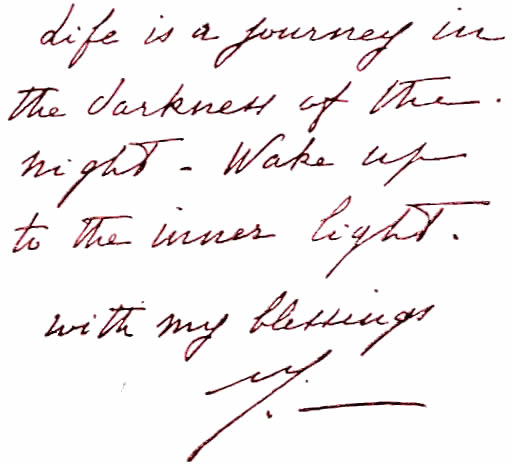 Life is a journey in
the darkness of the
night - Wake up
to the inner light.
with my blessings